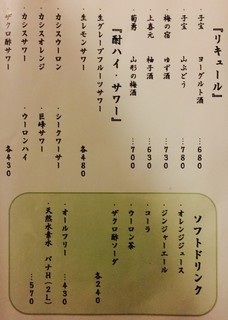 『リキュール』
・子宝 ヨーグルト酒 …680
・子宝 山ぶどう …780
・梅の宿 ゆず酒 …730
・上喜元 柚子酒 …630
・菊勇 山形の梅酒 …700
『酎ハイ・サワー』
・生グレープフルーツサワー
・生レモンサワー 各480
・カシスウーロン ・シークワーサー
・カシスオレンジ ・巨峰サワー
・カシスサワー ・ウーロンハイ
・ザクロ酢サワー 各430
ソフトドリンク
・オレンジジュース
・ジンジャーエール
・コーラ
・ウーロン茶
・ザクロ酢ソーダ 各240
・オールフリー …430
・天然水素水 バナH(2L) …570